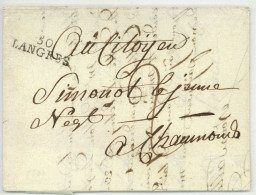 50
LANGRES
Au Citoyen
Simonot le jeune
Negt
a Chaumond